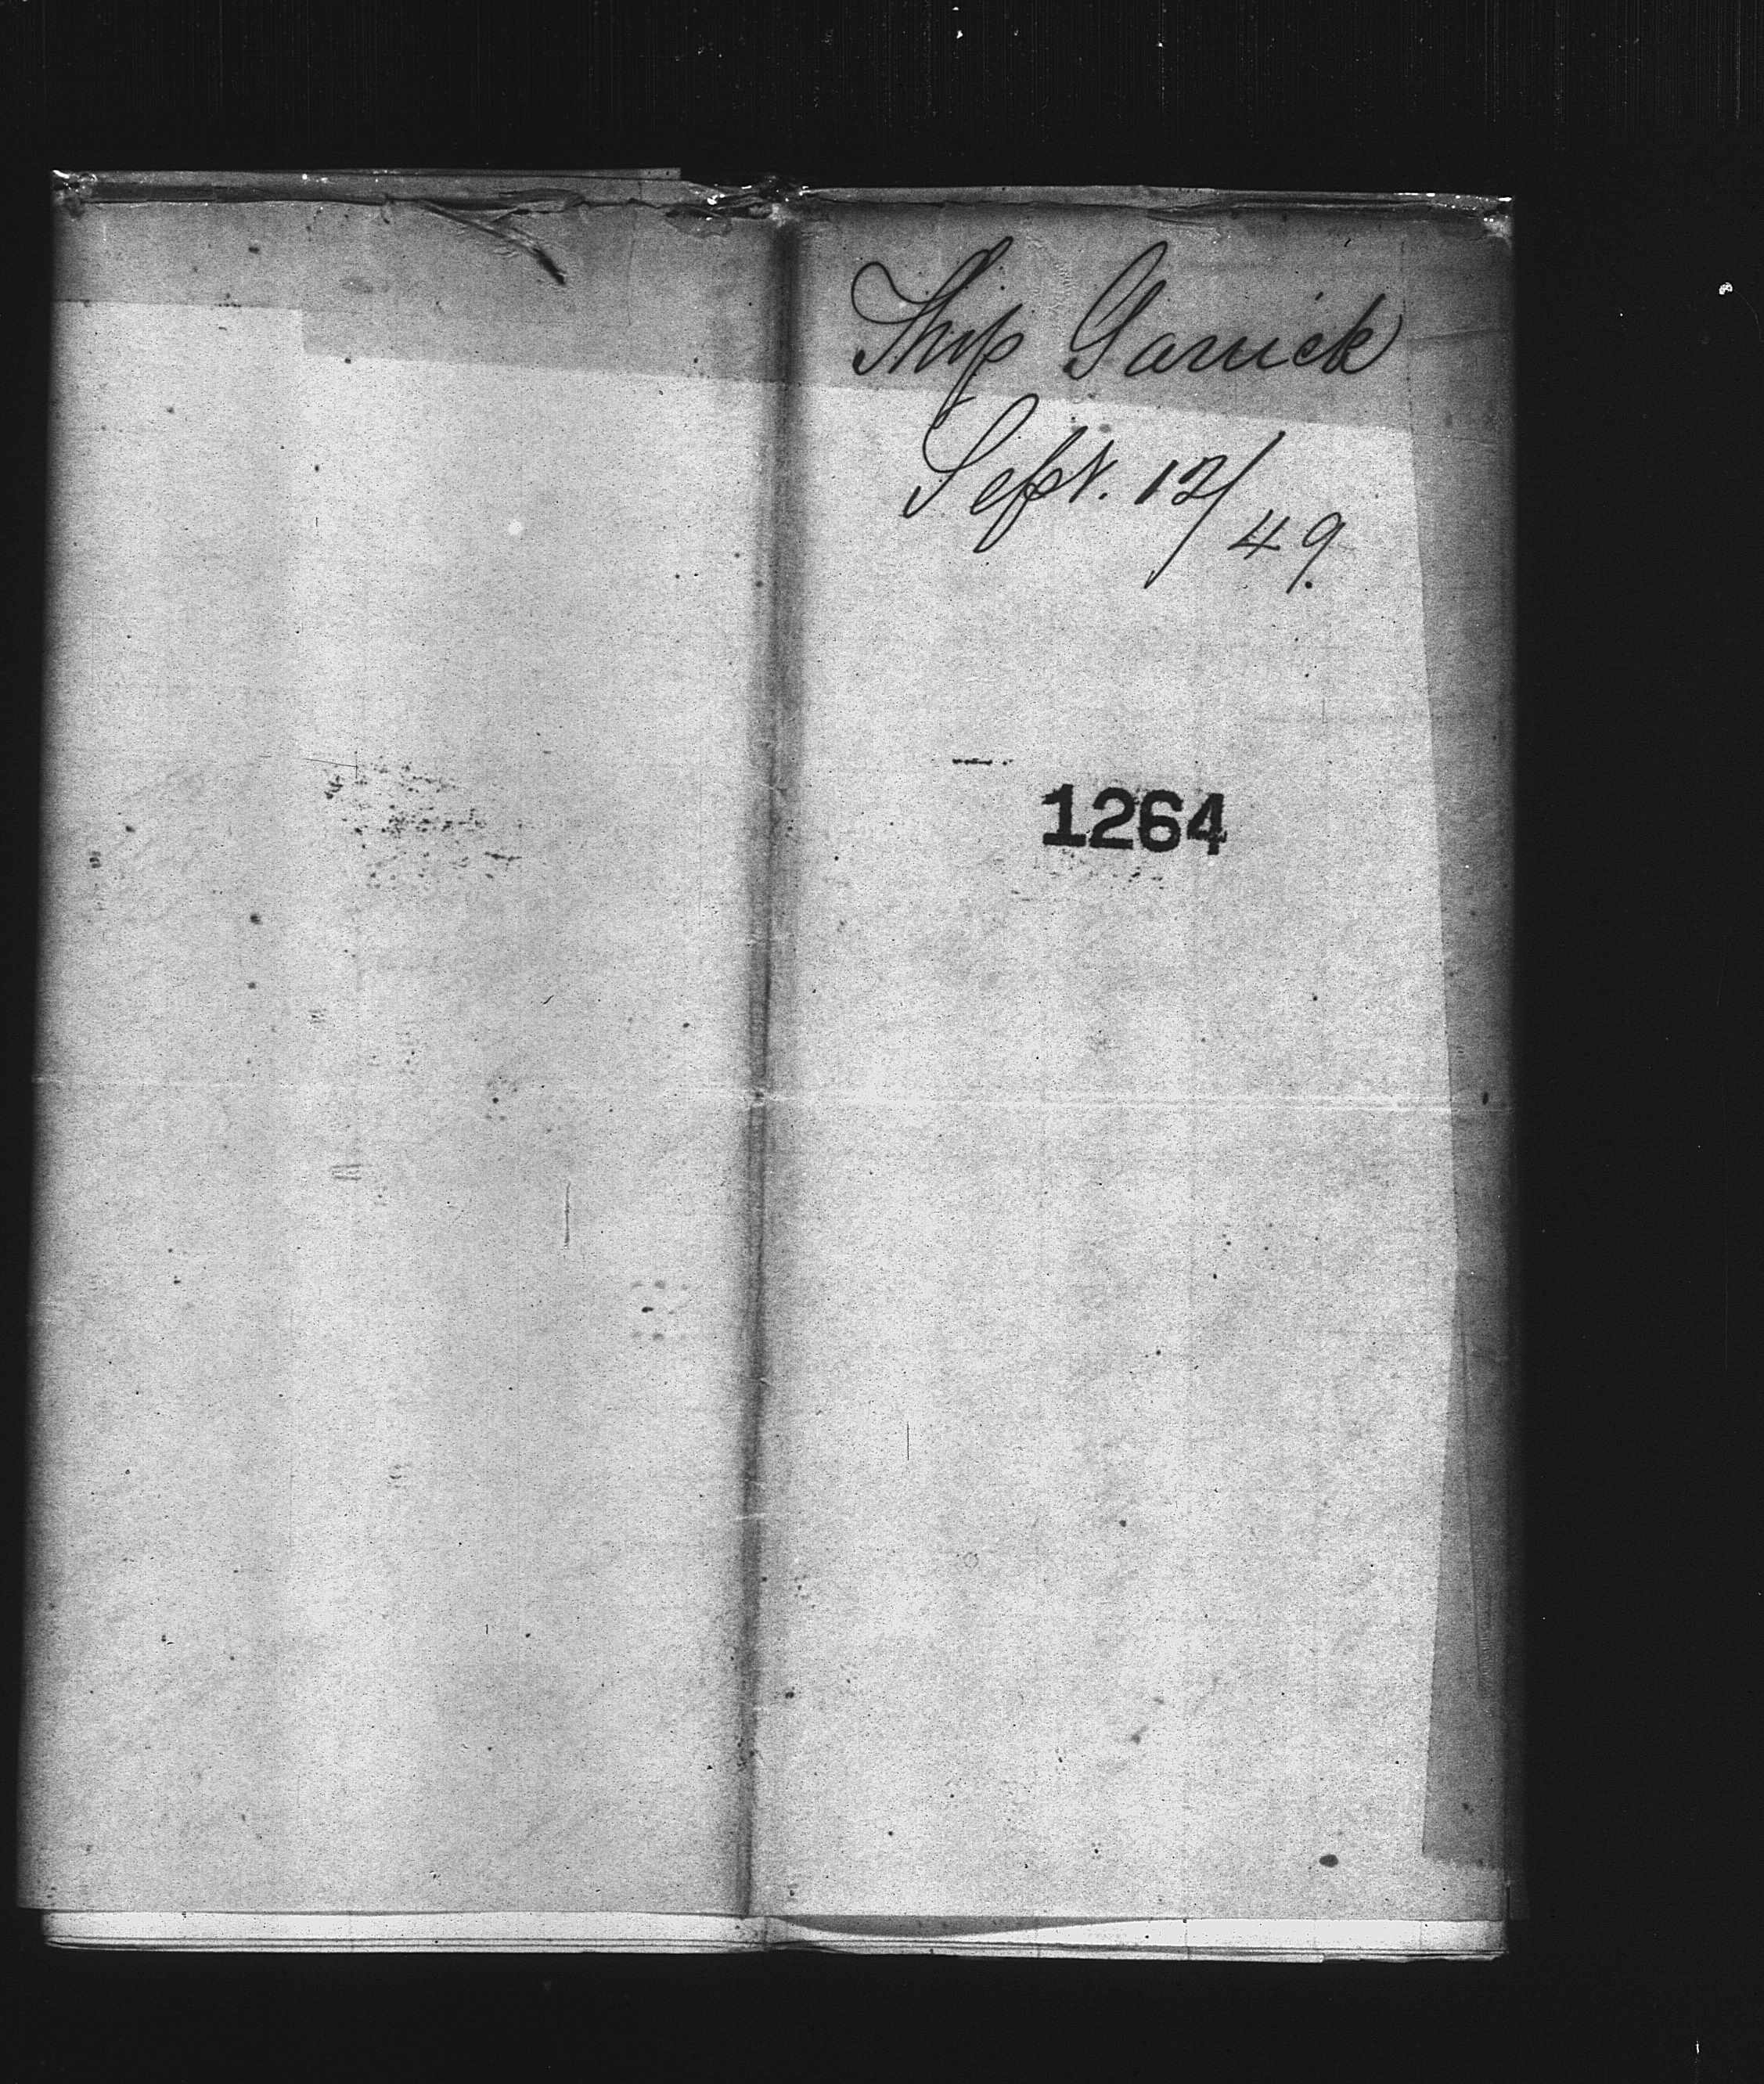 Ship Garrick
Sept. 12/49
1264